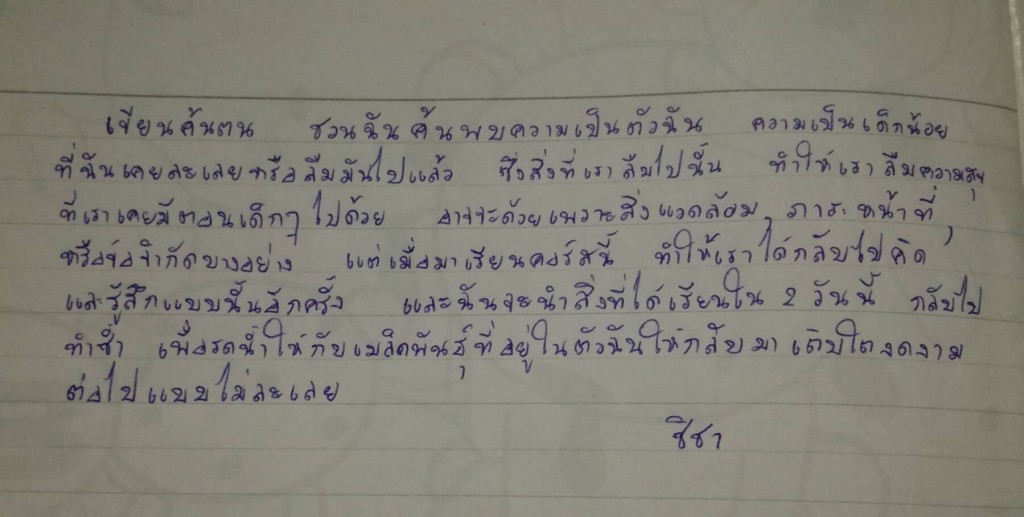 เขียนค้นตน ชวนฉันค้นพบความเป็นตัวฉัน ความเป็นเด็กน้อย
ที่ฉันเคยละเลยหรือลืมมันไปแล้ว ซึ่งสิ่งที่เราลืมไปนั้น ทำให้เราลืมความสุข
ที่เราเคยมีตอนเด็กๆ ไปด้วย อาจจะด้วยเพราะสิ่งแวดล้อม, ภาระหน้าที่,
หรือข้อจำกัดบางอย่าง แต่เมื่อมาเรียนคอร์สนี้ ทำให้เราได้กลับไปคิด
และรู้สึกแบบนั้นอีกครั้ง และฉันจะนำสิ่งที่ได้เรียนใน 2 วันนี้ กลับไป
ทำซ้ำ เพื่อรดน้ำให้กับเมล็ดพันธุ์ที่อยู่ในตัวฉันให้กลับมาเติบโตงดงาม
ต่อไปแบบไม่ละเลย
ชิชา